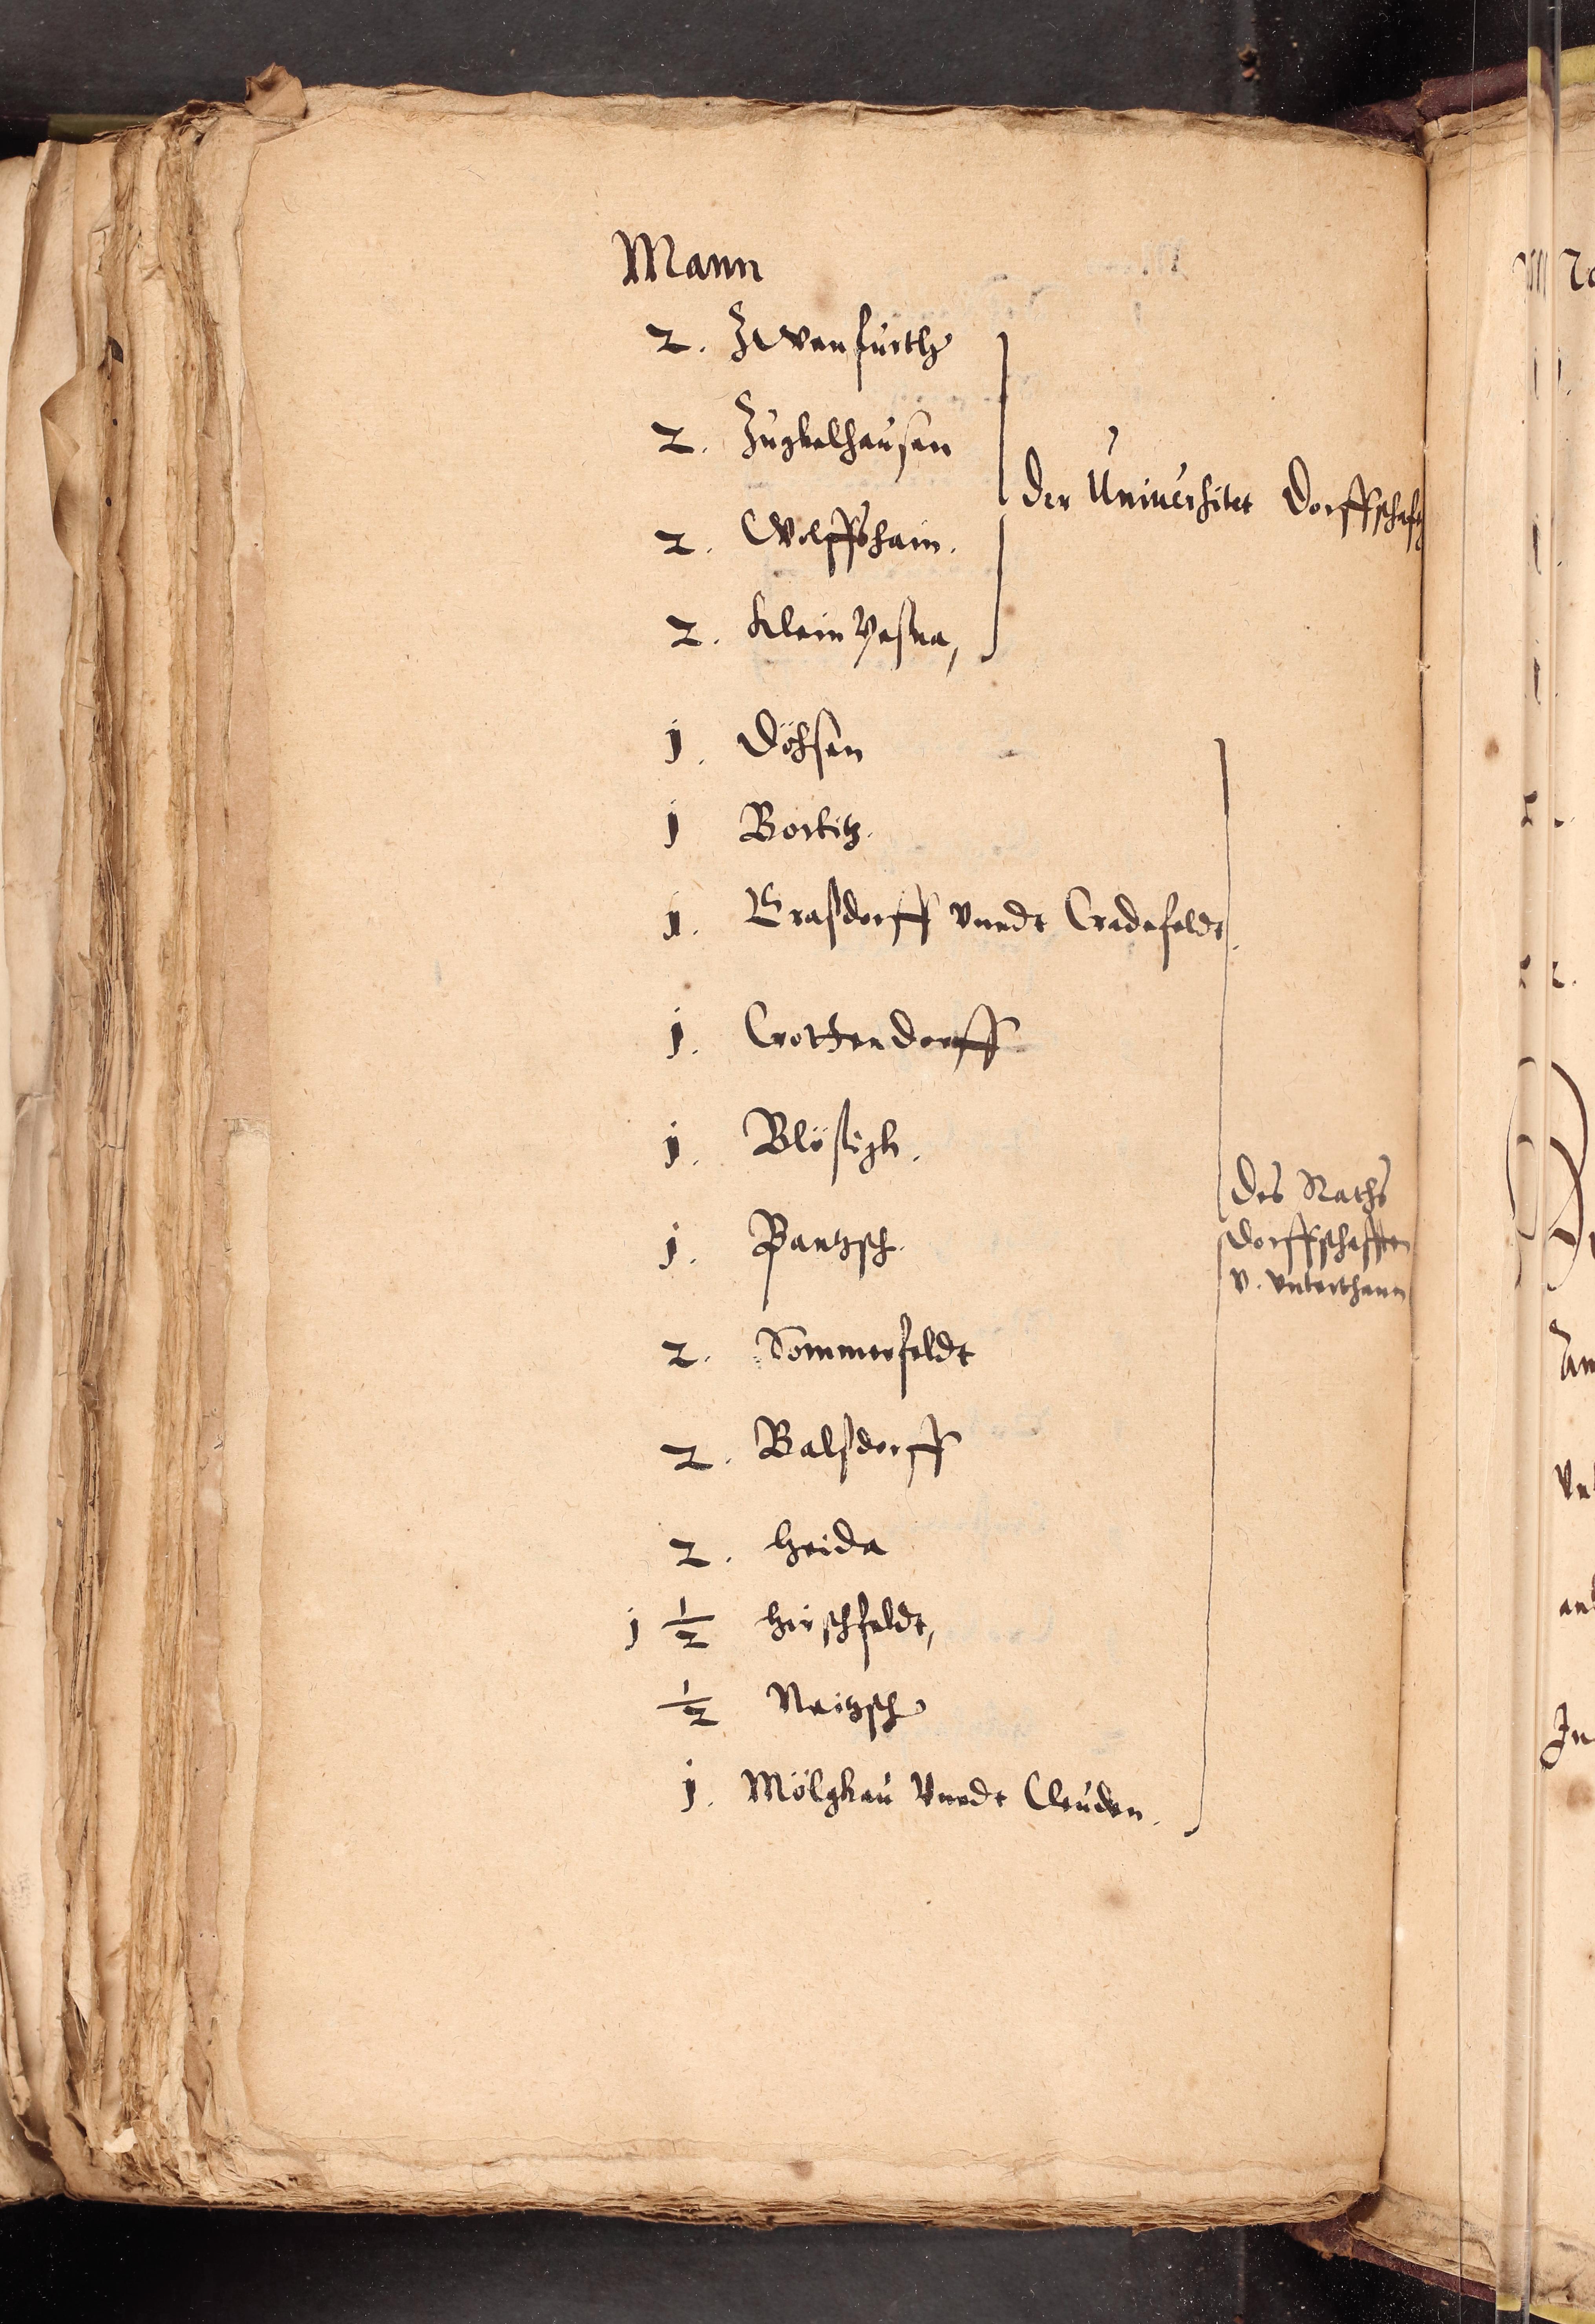 Mann
2. Zweenfurth
2. Zugkelhausen
2. Wolffshain.
2. Klein Pesna,
der Universitet Dorffschafft
j. Döhsen
j Portitz.
j. Graßdorff vnndt Cradefeldt.
j. Crottendorff
j. Plösigk.
j. Pantzsch.
2. Sommerfeldt
2. Balsdorff
2. Heida
j ½ Hirschfeldt,
½ Naitzsch
j. Mölgkau Vnndt Cleuden.
des Raths
dorffschafften
v. vnterthann